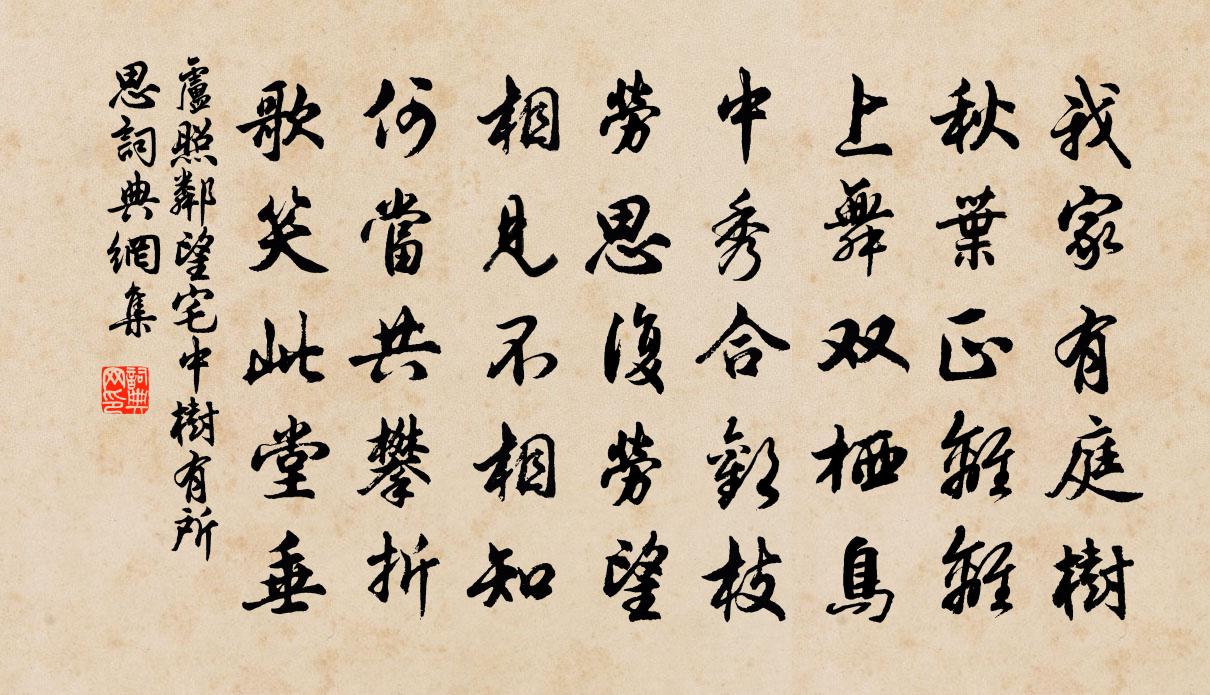 我家有庭樹
秋葉正離離
上舞双栖鳥
中秀合歡枝
勞思復勞望
相見不相知
何當共攀折
歌笑此堂垂
盧照鄰望宅中樹有所
思詞典網集
詞典
网印